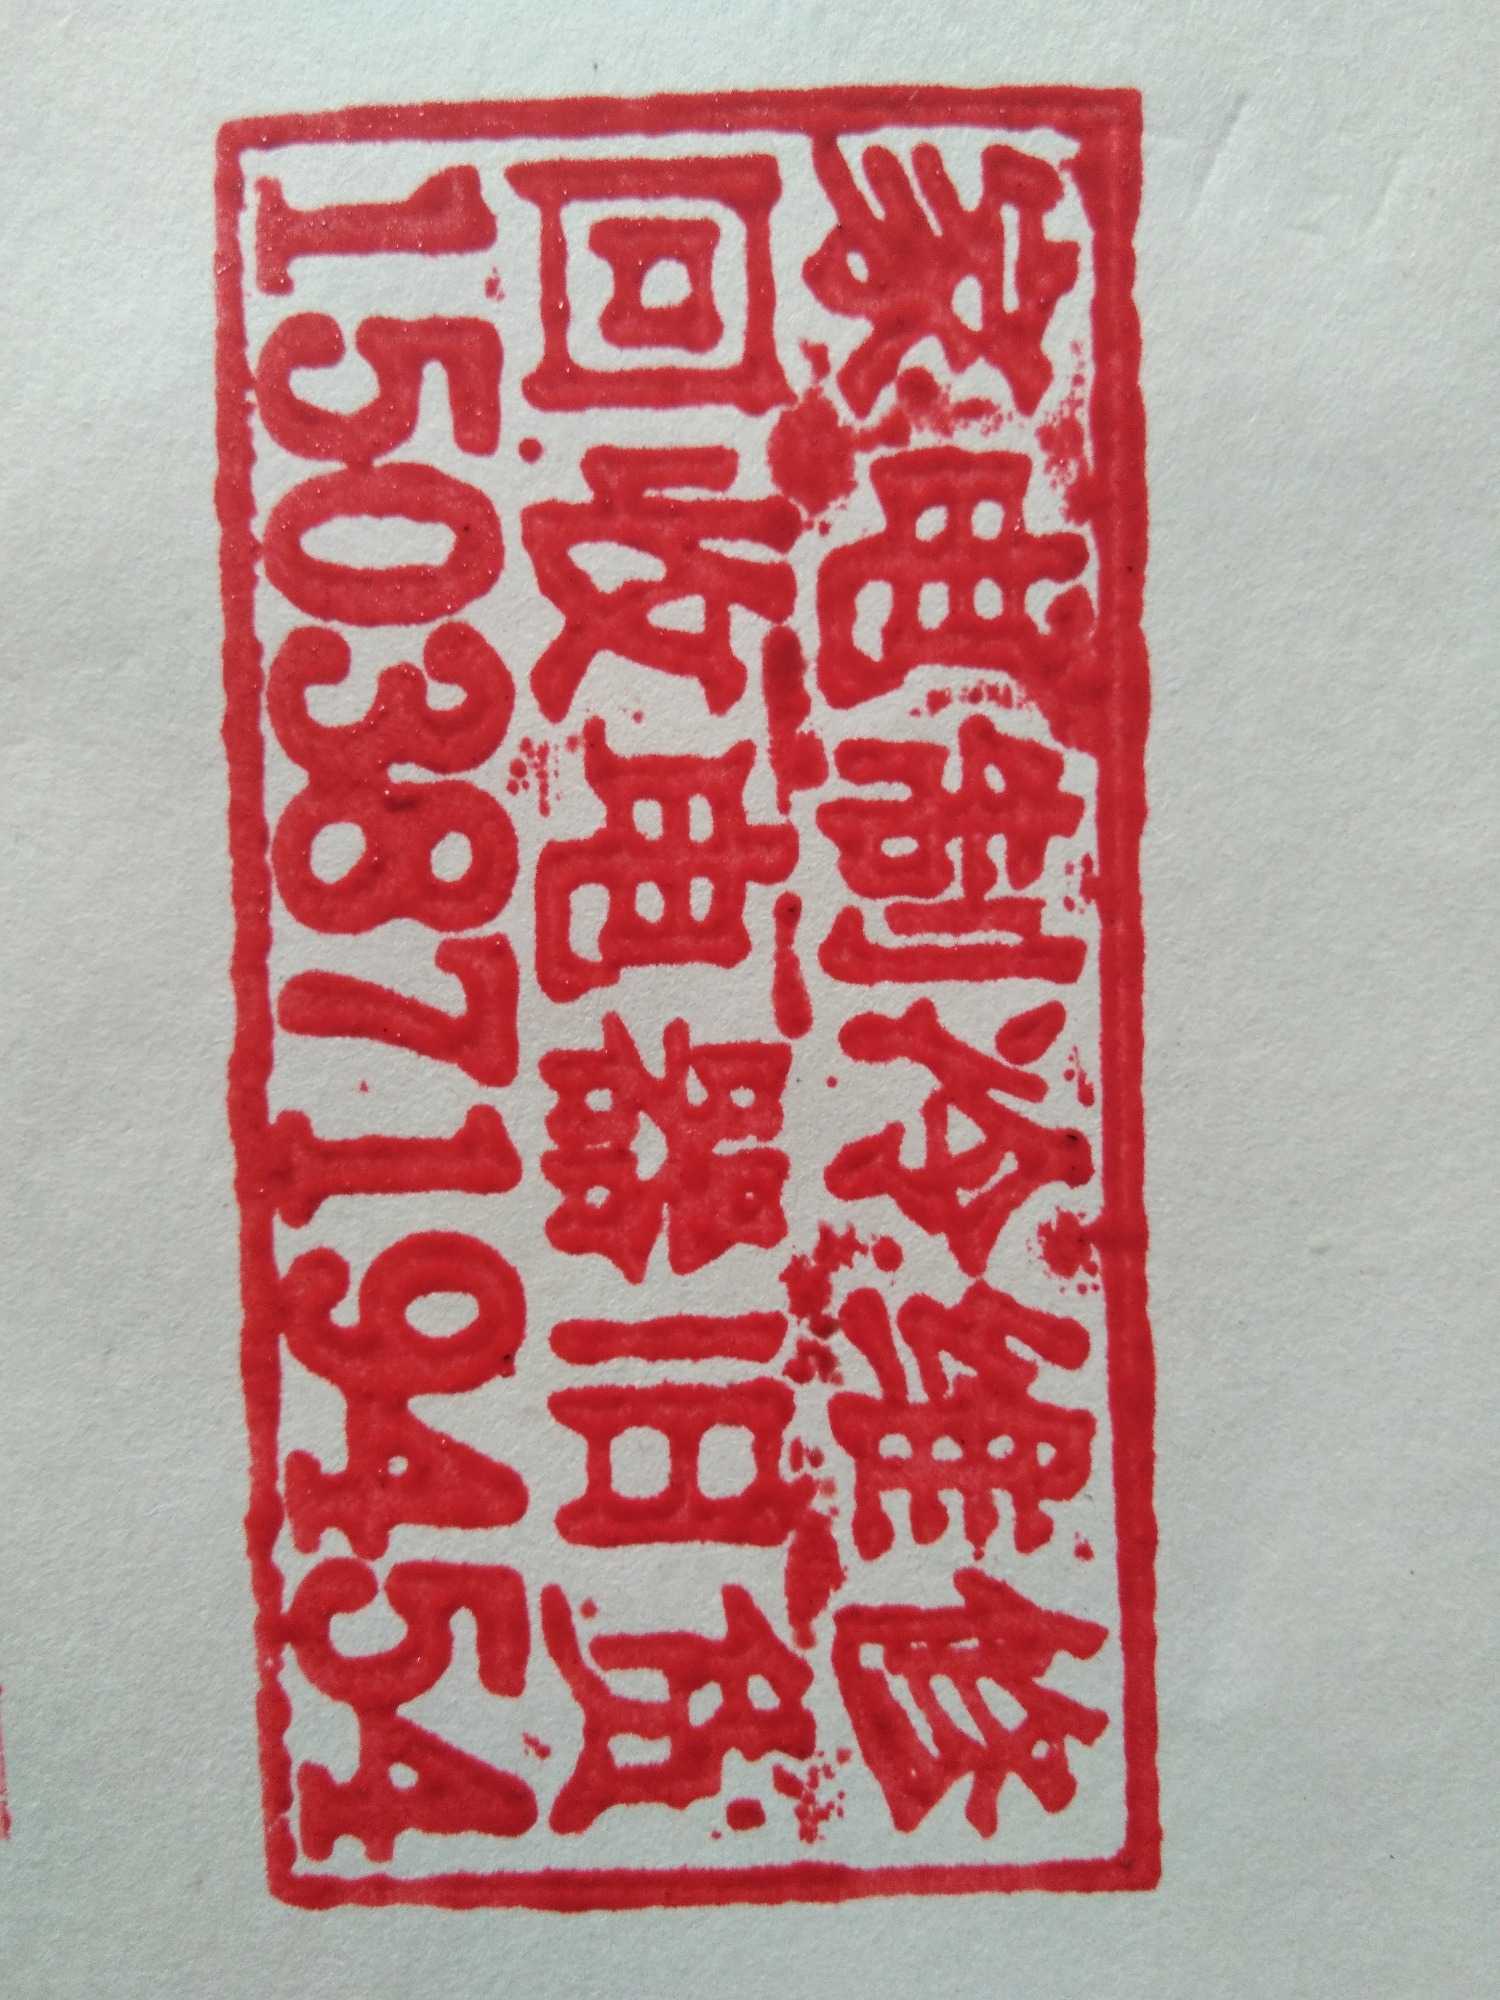 家电制冷维修
回收电器旧货
15038719454